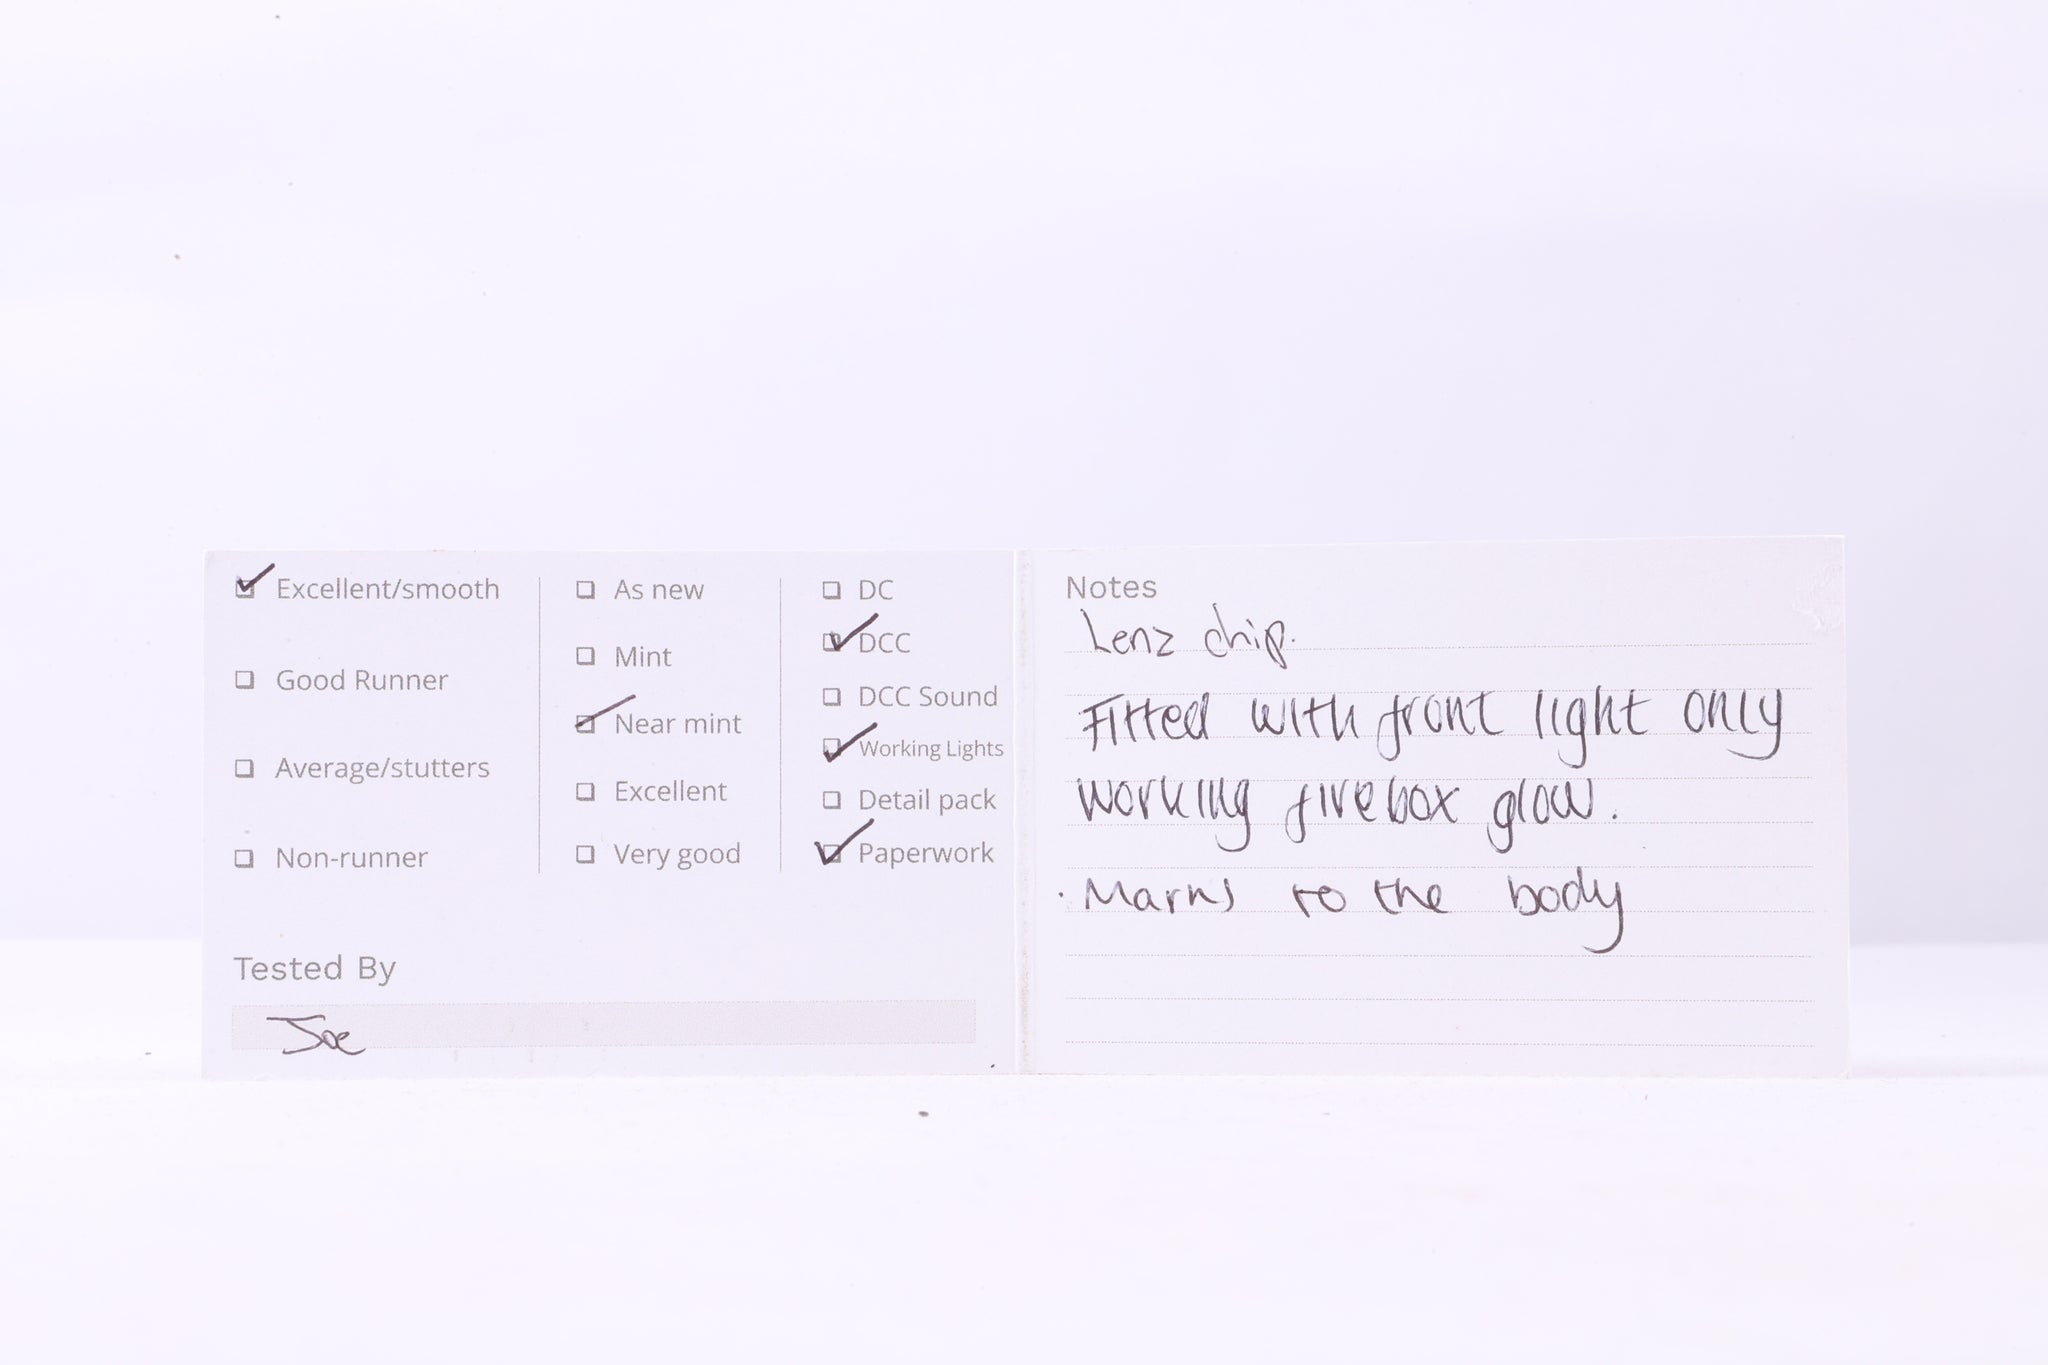 Excellent/smooth
Good Runner
Average/stutters
Non-runner
As new
Mint
Near mint
Excellent
Very good
DC
DCC
DCC Sound
Working Lights
Detail pack
Paperwork
Tested By
Joe
Notes
Lenz chip.
Fitted with front light only
working firebox glow.
· Marks to the body